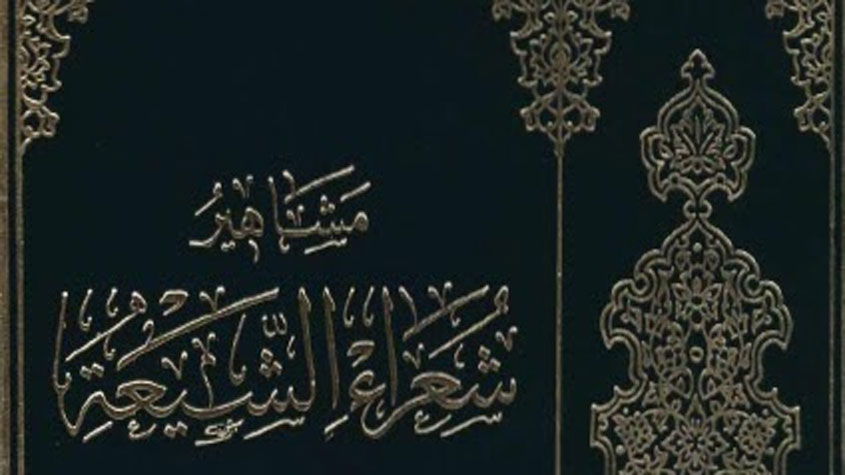 مَشَاهِيرُ
شُعَرَاءِ الشِّيعَةِ